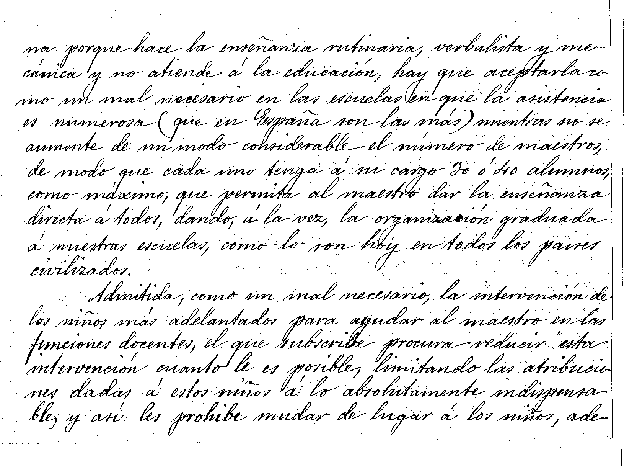 na porque hace la enseñanza rutinaria, verbalista y me-
cánica y no atiende á la educación, hay que aceptarla co-
mo un mal necesario en las escuelas en que la asistencia
es numerosa (que en España son las más) mientras no se
aumente de un modo considerable el número de maestros,
de modo que cada uno tenga á su cargo 30 ó 40 alumnos,
como máximo, que permita al maestro dar la enseñanza
directa a todos, dando, á la vez, la organización graduada
á nuestras escuelas, como lo son hoy en todos los paises
civilizados.
Admitida, como un mal necesario, la intervención de
los niños más adelantados para ayudar al maestro en las
funciones docentes, el que subscribe procura reducir esta
intervención cuanto le es posible, limitando las atribucio-
nes dadas á estos niños á lo absolutamente indispensa-
ble, y así les prohibe mudar de lugar á los niños, ade-